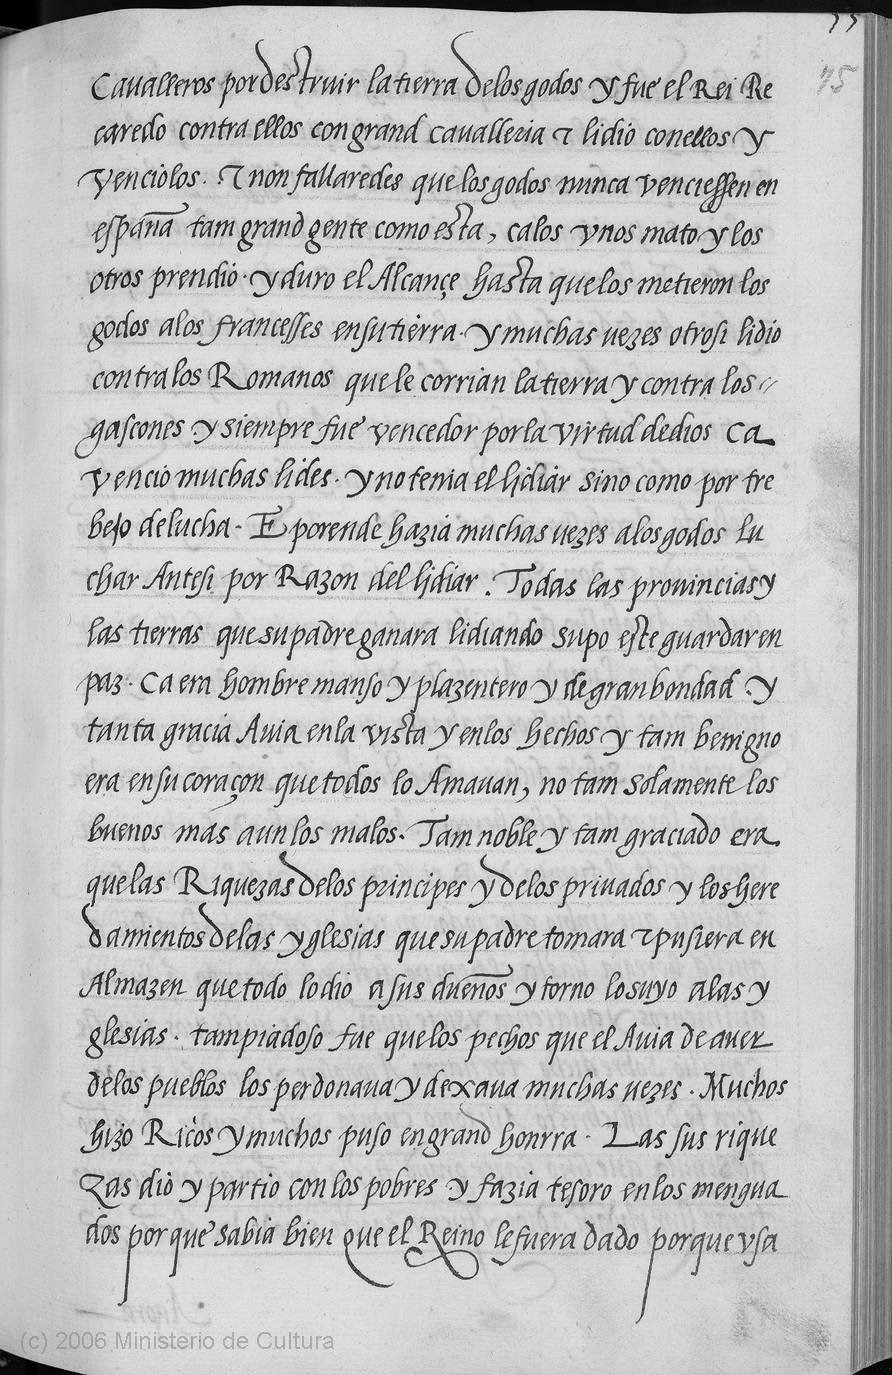 75
Cavalleros por destruir la tierra de los godos y fue el Rei Re
caredo contra ellos con grand cavalleria τ lidio con ellos y
venciolos. τ non fallaredes que los godos nunca venciessen en
espana tam grand gente como esta, ca los vnos mato y los
otros prendio. y duro el Alcançe hasta que los metieron los
godos a los francesses en su tierra. y muchas uezes otrosi lidio
contra los Romanos que le corrian la tierra y contra los
gascones y siempre fue vencedor por la virtud de dios ca
vencio muchas lides. y no tenia el lidiar sino como por tre
bejo de lucha. E porende hazia muchas uezes a los godos lu
char Antesi por Razon del lidiar. Todas las prouincias y
las tierras que su padre ganara lidiando supo este guardar en
paz. ca era hombre manso y plazentero y de gran bondad. y
tanta gracia Auia en la vista y en los hechos y tam benigno
era en su coraçon que todos lo Amauan, no tam solamente los
buenos mas aun los malos. Tam noble y tam graciado era
que las Riquezas de los principes y de los priuados y los here
damientos de las yglesias que su padre tomara τ pusiera en
Almazen que todo lo dio a sus duenos y torno lo suyo a las y
glesias. tam piadoso fue que los pechos que el Auia de auer
de los pueblos los perdonaua y dexaua muchas uezes. Muchos
hizo Ricos y muchos puso en grand honrra. Las sus rique
zas dio y partio con los pobres y fazia tesoro en los mengua
dos porque sabia bien que el Reino le fuera dado porque vsa
(c) 2006 Ministerio de Cultura